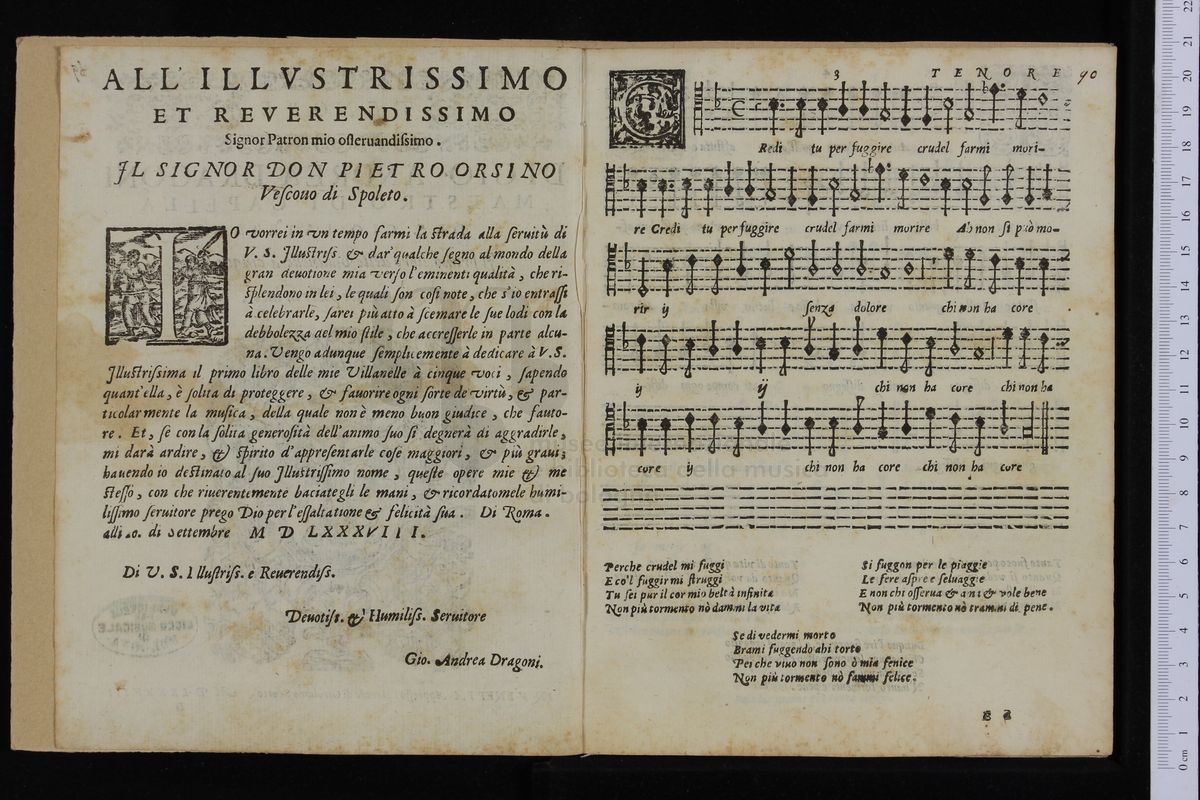 ALL'ILLVSTRISSIMO
ET REVERENDISSIMO
Signor Patron mio osseruandissimo.
IL SIGNOR DON PIETRO ORSINO
Vescouo di Spoleto.
IO vorrei in vn tempo farmi la strada alla seruitù di
V. S. Illustriss. & dar' qualche segno al mondo della
gran deuotione mia verso l'eminenti qualità, che ri-
splendono in lei, le quali son così note, che s'io entrassi
à celebrarle, sarei più atto à scemare le sue lodi con la
debbolezza del mio stile, che accresserle in parte alcu-
na. Vengo adunque semplicemente à dedicare à V. S.
Illustrissima il primo libro delle mie Villanelle à cinque voci, sapendo
quant'ella, è solita di proteggere, & fauorire ogni sorte de virtù, & par-
ticolarmente la musica, della quale non è meno buon giudice, che fauto-
re. Et, se con la solita generosità dell'animo suo si degnerà di aggradirle,
mi darà ardire, & spirito d'appresentarle cose maggiori, & più graui;
hauendo io destinato al suo Illustrissimo nome, queste opere mie & me
stesso, con che riuerentemente baciategli le mani, & ricordatomele humi-
lissimo seruitore prego Dio per l'essaltatione & felicità sua. Di Roma.
alli di Settembre M D LXXXVIII.
Di V. S. Illustriss. e Reuerendiss.
Deuotiss. & Humiliss. Seruitore
Gio. Andrea Dragoni.
3 TENORE 90
CRedi tu per fuggire crudel farmi mori-
re Credi tu per fuggire crudel farmi morire Ah non si può mo-
rir ij senza dolore chi non ha core
ij ij chi non ha core chi non ha
core ij chi non ha core chi non ha core
Perche crudel mi fuggi
E co'l fuggir mi struggi
Tu sei pur il cor mio beltà infinita
Non più tormento nò dammi la vita
Si fuggon per le piaggie
Le fere aspre e seluaggie
E non chi osserua & ani & vole bene
Non più tormento nò trammi di pene.
Se di vedermi morto
Brami fuggendo ahi torto
Per che viuo non sono ò mia fenice
Non più tormento nò fammi felice.